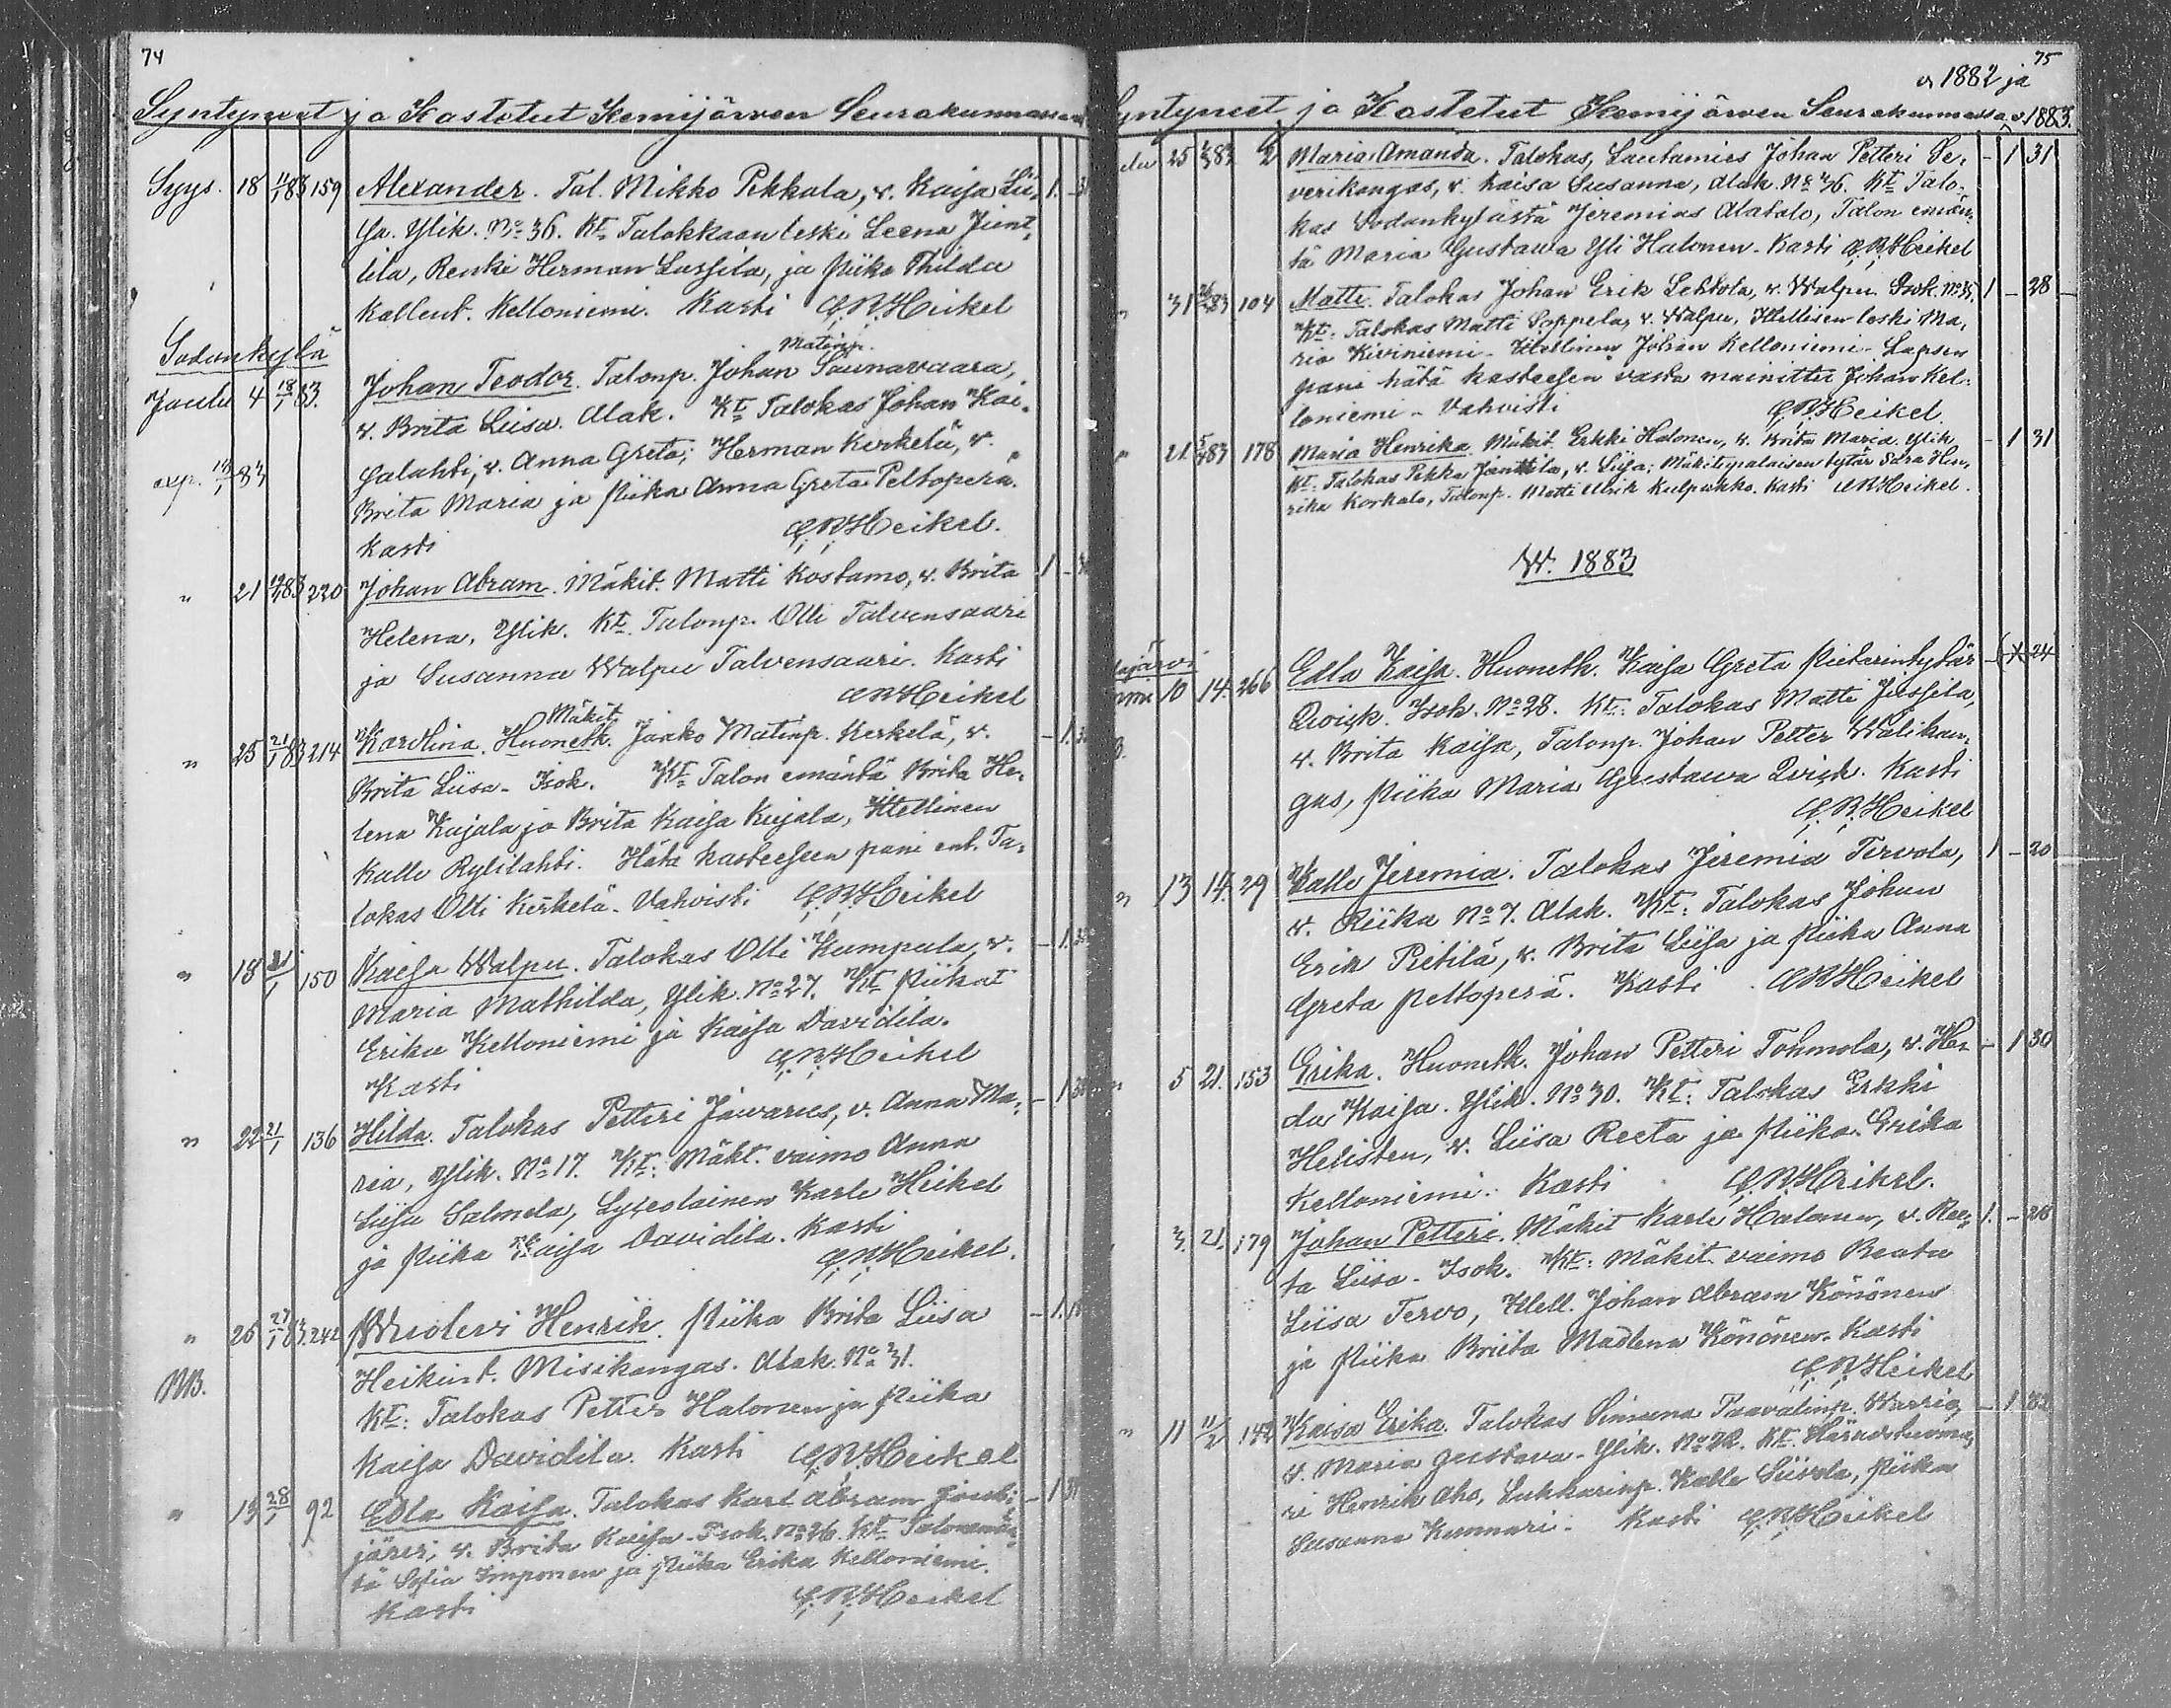 74
Syntyneet ja Kastetut Kemijärven Seurakunnassa
Syys. 18 11/1 83 159 Alexander. Tal. Mikko Pekkala, v. Kaisa Lii- 1. -
sa. Ylik. No 36. Kt. Talokkaan leski Leena Junt-
tila, Renki Herman Lassila, ja Piika Thilda
Kallent. Kelloniemi. Kasti C. R. Heikel
Sodankylä
Matinp.
Joulu 4 18/1 83. Johan Teodor. Talonp. Johan Saunavaara,
v. Brita Liisa. Alak. Kt. Talokas Johan Kai-
exp. 18/1 83 salahti, v. Anna Greta; Herman Kerkelä, v.
Brita Maria ja Piika Anna Greta Peltoperä.
Kasti C. R. Heikel.
" 21 19/1 83 220 Johan Abram. Mäkit. Matti Kostamo, v. Brita 1 -
Helena, Ylik. Kt. Talonp. Olli Talvensaari
ja Susanna Walpu Talvensaari. Kasti
C R Heikel
Mäkit.
" 25 21/1 83 214 Karolina. Huoneth. Janko Matinp. Kerkelä, v. - 1.
Brita Liisa - Isok. Kt. Talon emäntä Brita He-
lena Kujala ja Brita Kaisa Kujala, Itellinen
Kalle Rytilahti. Hätä kasteeseen pani ent. Ta-
lokas Olli Kerkelä - Vahvisti C. R. Heikel
" 18 21/1 150 Kaisa Walpu. Talokas Olli Kumpula, v. - 1.
Maria Mathilda, Ylik. No 27. Kt. Piikat
Erika Kelloniemi ja Kaisa Davidila.
Kasti C. R. Heikel
" 22 21/1 136 Hilda. Talokas Petteri Jawarus, v. Anna Ma- - 1
ria, Ylik. No 17. Kt. Mäkt. vaimo Anna
Liisa Salmela, Lyseolainen Karle Heikel
ja Piika Kaisa Davidila. Kasti
C. R. Heikel.
" 25 27/1 83. 242 Wiolevi Henrik. Piika Brita Liisa - 1.
NB. Heikint. Misikangas. Alak. No 31.
Kt: Talokas Petter Halonen ja Piika
Kaisa Davidila. Kasti C. R. Heikel
" 13 28/1 92 Edla Kaisa. Talokas Karl Abram Jouti- - 1
järvi, v. Brita Kaisa - Isok. No 26. Kt. Talonemän-
tä Sofia Imponen ja Piika Erika Kelloniemi.
Kasti C. R. Heikel
75
v 1882 ja
Syntyneet ja Kastetut Kemijärven Seurakunnassa v. 1883.
25 83 2 Maria Amanda. Talokas, Lautamies Johan Petteri Se- - 1 31
verikangas, v. Kaisa Susanna, Alak. No 36. Kt. Talo-
kas Sodankylästä Jeremias Alatalo, Talon emän-
tä Maria Gustawa Yli Halonen. Kasti C. R. Heikel
" 31 83 104 Matti. Talokas Johan Erik Lehtola, v. Walpu. Isok. No 35, 1 - 28
Kt: Talokas Matti Soppela, v. Walpu, Itellisen leski Ma-
ria Kiviniemi - Itellinen Johan Kelloniemi - Lapsen
pani hätä kasteesen vasta mainittu Johan Kel-
loniemi - Vahvisti C. R. Heikel.
" 21 83 178 Maria Henrika. Mäkit. Erkki Halonen, v. Brita Maria. Ylik. - 1 31
Kt: Talokas Pekka Junttila, v. Liisa; Mäkitupalaisen tytär Sara Hen-
rika Korkala, Talonp. Matti Ulrik Kulpakko. Kasti C R Heikel.
W. 1883
10 14. 266 Edla Kaisa. Huoneth. Kaisa Greta Pietarintytär 24
Qvisk. Isok. No 28. Kt: Talokas Matti Jussila,
v. Brita Kaisa, Talonp. Johan Petter Wälikan-
gas, Piika Maria Gustawa Qvisk. Kasti
C. R. Heikel
" 13 14. 29 Kalle Jeremia. Talokas Jeremia Tervola, 1 - 20
v. Riika No 7. Alak. Kt: Talokas Johan
Erik Pietilä, v. Brita Liisa ja Piika Anna
Greta Peltoperä. Kasti. C R Heikel
" 5 21. 153 Erika. Huoneth. Johan Petteri Tohmola, v. He- - 1 30
da Kaisa. Ylik. No 30. Kt: Talokas Erkki
Helisten, v. Liisa Reeta ja Piika Erika
Kelloniemi. Kasti C. R. Heikel.
3. 21. 179 Johan Petteri. Mäkit Karle Halonen, v. Ree- 1. - 28
ta Liisa - Isok. Kt: Mäkit. vaimo Beata
Liisa Tervo, Itell. Johan Abram Könönen
ja Piika Briita Madlena Könönen. Kasti
C. R. Heikel
" 11 11/2 142 Kaisa Erika. Talokas Simuna Paavalinp. Warrio, - 1 32
v. Maria Gustava - Ylik. No 22. Kt. Häradstuoma-
ri Henrik Aho, Lukkarinp. Kalle Liivola, Piika
Susanna Kunnari. Kasti C. R. Heikel